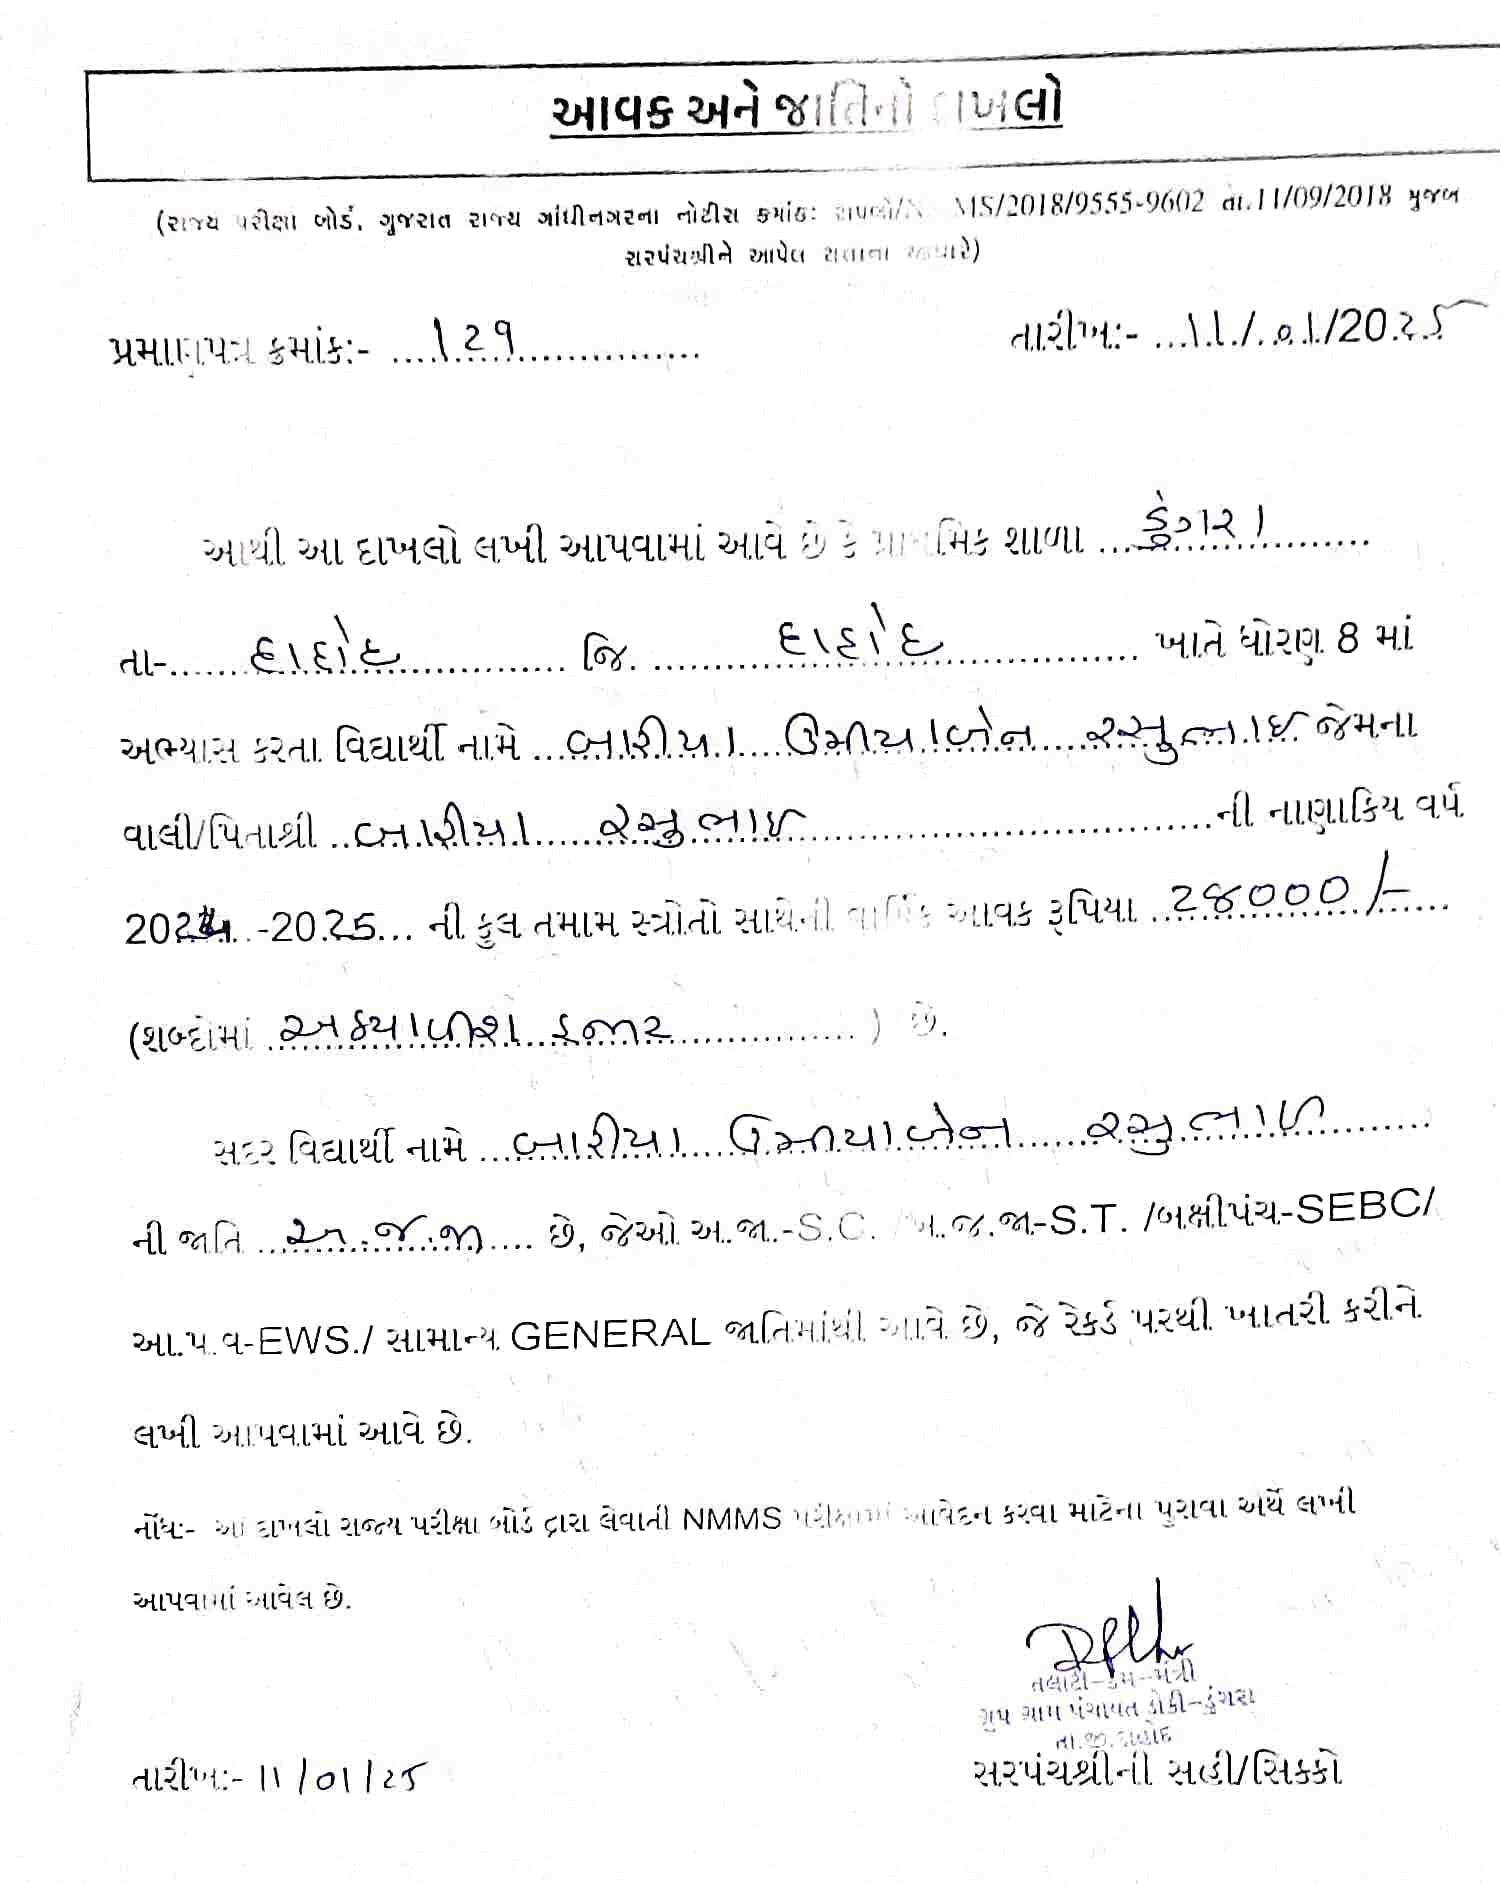 આવક અને જાતિનો દાખલો
(રાજ્ય પરીક્ષા બોર્ડ, ગુજરાત રાજ્ય ગાંધીનગરના નોટીસ ક્રમાંક: MS/2018/9555-9602 તા.11/09/2018 મુજબ
સરપંચશ્રીને આપેલ સત્તાના આધારે)
પ્રમાણપત્ર ક્રમાંક:- ....129.................. તારીખ:- ...11/.01/2025
આથી આ દાખલો લખી આપવામાં આવે છે કે પ્રાથમિક શાળા ...ડુંગરા..........
તા-......દાહોદ............. જિ. ..........દાહોદ................ ખાતે ધોરણ 8 માં
અભ્યાસ કરતા વિદ્યાર્થી નામે ...બારીયા....ઉમીયાબેન.... રસુભાઇ જેમના
વાલી/પિતાશ્રી ..બારીયા.... રસુભાઇ..............................ની નાણાકિય વર્ષ
2024..-2025... ની કુલ તમામ સ્ત્રોતો સાથેની વાર્ષિક આવક રૂપિયા ..૨૪૦૦૦/-....
(શબ્દોમાં .............. હજાર............... ) છે.
સદર વિદ્યાર્થી નામે ...બારીયા....ઉમીયાબેન...... રસુભાઇ..........
ની જાતિ ...અ.જ.જા.... છે, જેઓ અ.જા.-S.C. /અ.જ.જા-S.T. /બક્ષીપંચ-SEBC/
આ.પ.વ-EWS./ સામાન્ય GENERAL જાતિમાંથી આવે છે, જે રેકર્ડ પરથી ખાતરી કરીને
લખી આપવામાં આવે છે.
નોંધ:- આ દાખલો રાજ્ય પરીક્ષા બોર્ડ દ્વારા લેવાતી NMMS પરીક્ષામાં આવેદન કરવા માટેના પુરાવા અર્થે લખી
આપવામાં આવેલ છે.
તલાટી-કમ-મંત્રી
ગ્રુપ ગ્રામ પંચાયત ડોકી-ડુંગરા
તા.જી.દાહોદ
તારીખ:- 11/01/25 સરપંચશ્રીની સહી/સિક્કો